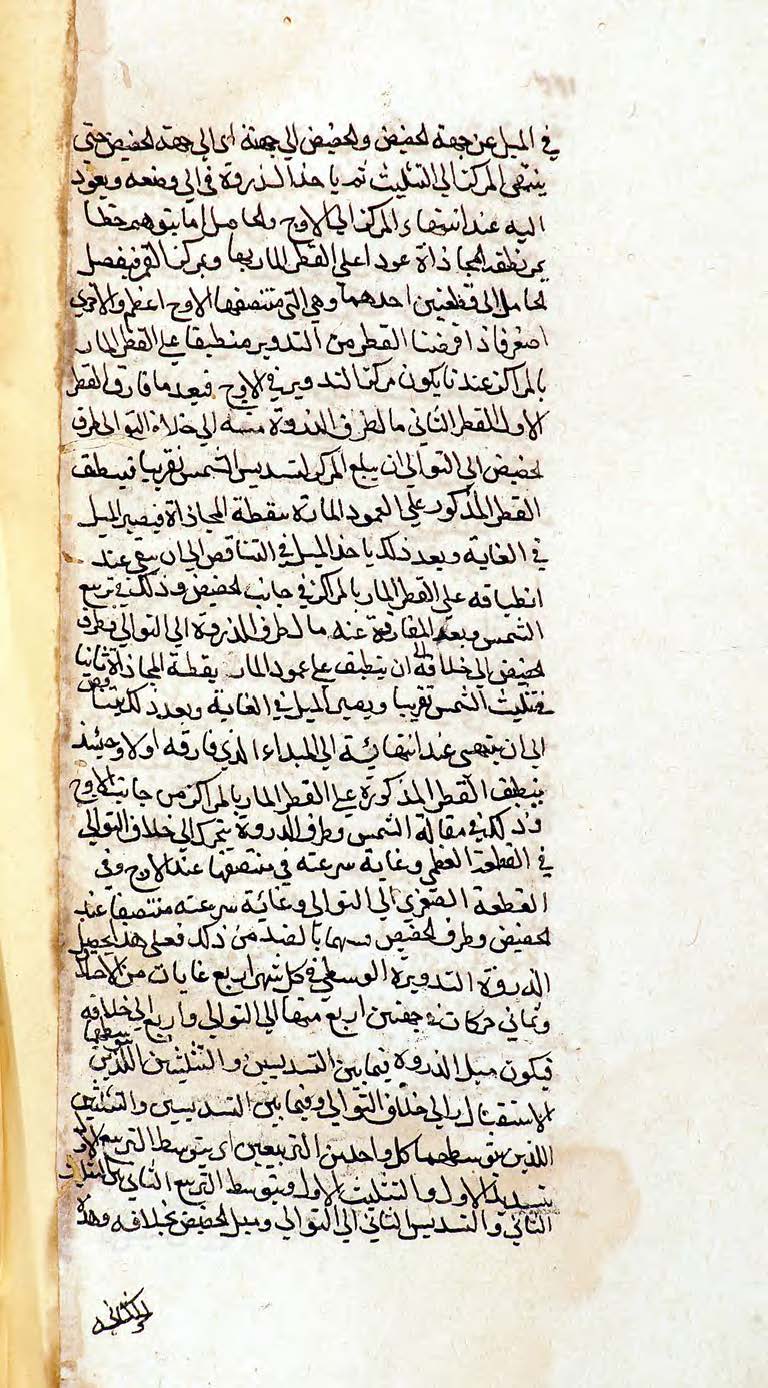 في الميل عن جهة لحضيض ولحضيض الي جهتة اي الي جهة لحضيض حتي
ينتهي المركز الي التثليث ثم ياخذ الذروة في الي وضعه ويعود
اليه عند انتهاء المركز الي الاوج ولحاصل اما يتوهم خطا
يمر بنقطة المجاذاة عودا علي القطر المار بها وبمركز القمر فيفصل
لحامل الي قطعتين احدهما وهي التي منتصفها الاوج اعظم والاخري
اصغر فاذا فرضنا القطر من التدوير منطبقا علي القطر المار
بالمراكز عند نا يكون مركز التدوير في الاوج فبعد ما فارق القطر
الاول للقطر الثاني مال طرف الذروة منه الي خلاف التوالي طرف
لحضيض الي التوالي ان يبلغ المركز لتسديس الشمس تقريبا فينطبق
القطر المذكور علي العمود المارة بنقطة المجاذاة فيصير الميل
في الغاية وبعد ذلك ياخذ الميل في التناقص الي ان يبقي عند
انطباقه علي القطر المار بالمراكز في جانب لحضيض وذلك في تربيع
الشمس وبعد المفارقة عنه مال طرف الذروة الي التوالي وطرف
لحضيض الي خلافه الي ان ينطبق علي عمود المار بنقطة المجاذاة ثانيا
في تثليث الشمس تقريبا ويصير الميل في الغاية وبعد ذلك يتناقص
الي ان ينتهي عند انتهائية الي المبداء الذي فارقه اولا وحينئذ
ينطبق القطر المذكورة علي القطر المار بالمراكز من جانب الاوج
وذلك في مقابلة الشمس وطرف الذروة يتحرك الي خلاف التوالي
في القطعة العظمي وغاية سرعته في منتصفها عند الاوج وفي
القطعة الصغري الي التوالي وغائية سرعته منتصفا عند
لحضيض وطرف لحضيض بالضد من ذلك فعلي هذا يحصل
الذروة التدويرة الوسطي في كل شهر اربع غايات من
وثماني حركات في جهتين اربع منها الي التوالي واربع الي خلافه
فيكون ميل الذروة فيما بين التسديسين والتثليثين اللذين يتوسطهما
الاستقبال الي خلاف التوالي وفيما بين التسديسين والتثليثين
اللذين يتوسطهما كل واحد من التربيعين اي يتوسط التربيع الاول
بين التسديس الاول والتثليث الاول ويتوسط التربيع الثاني بين التثليث
الثاني والتسديس الثاني الي التوالي وميل لحضيض بخلافه وهذه